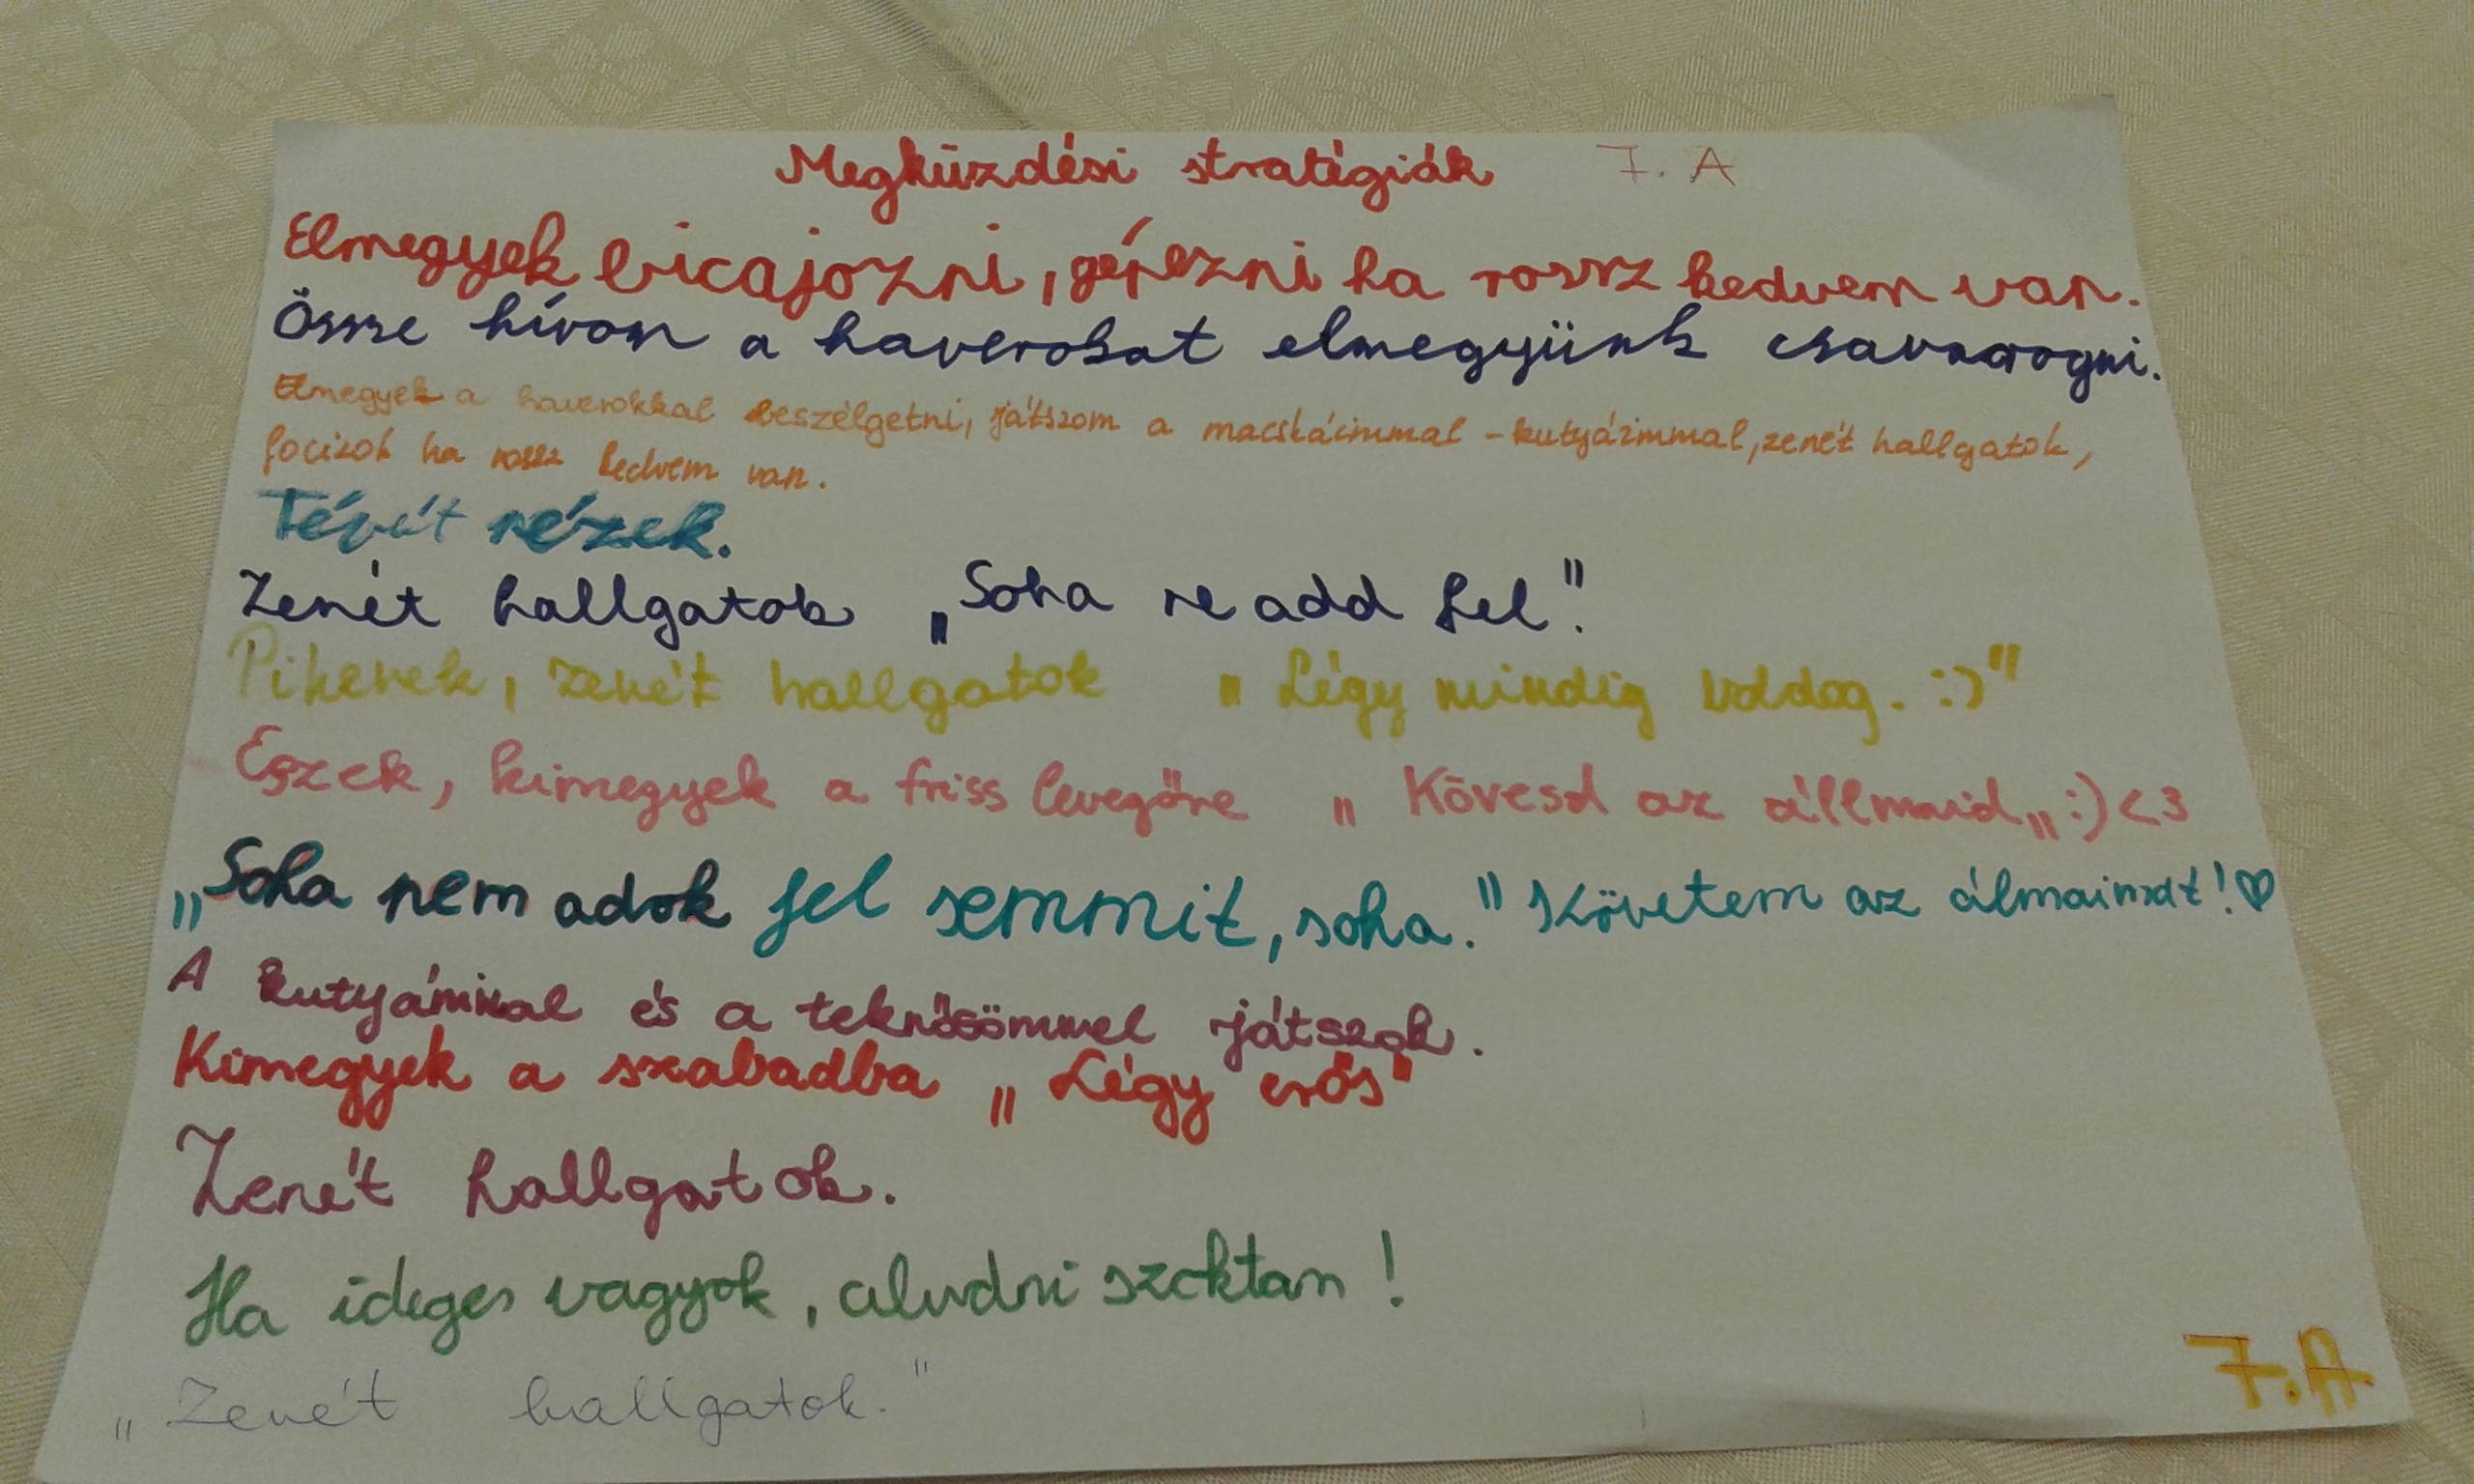 Megküzdési stratégiák 7. A
Elmegyek bicajozni, gépezni ha rossz kedvem van.
Össze hívom a haverokat elmegyünk csavarogni.
Elmegyek a haverokkal beszélgetni, játszom a macskáimmal - kutyáimmal, zenét hallgatok,
focizok ha rossz kedvem van.
Tévét nézek.
Zenét hallgatok „Soha ne add fel".
Pihenek, zenét hallgatok „Légy mindig boldog. :)"
Eszek, kimegyek a friss levegőre „Kövesd az állmaid„ :) <3
„Soha nem adok fel semmit, soha." Követem az álmaimat! ♡
A kutyámmal és a teknősömmel játszok.
Kimegyek a szabadba „Légy erős"
Zenét hallgatok.
Ha ideges vagyok, aludni szoktam!
„Zenét hallgatok."
7.A